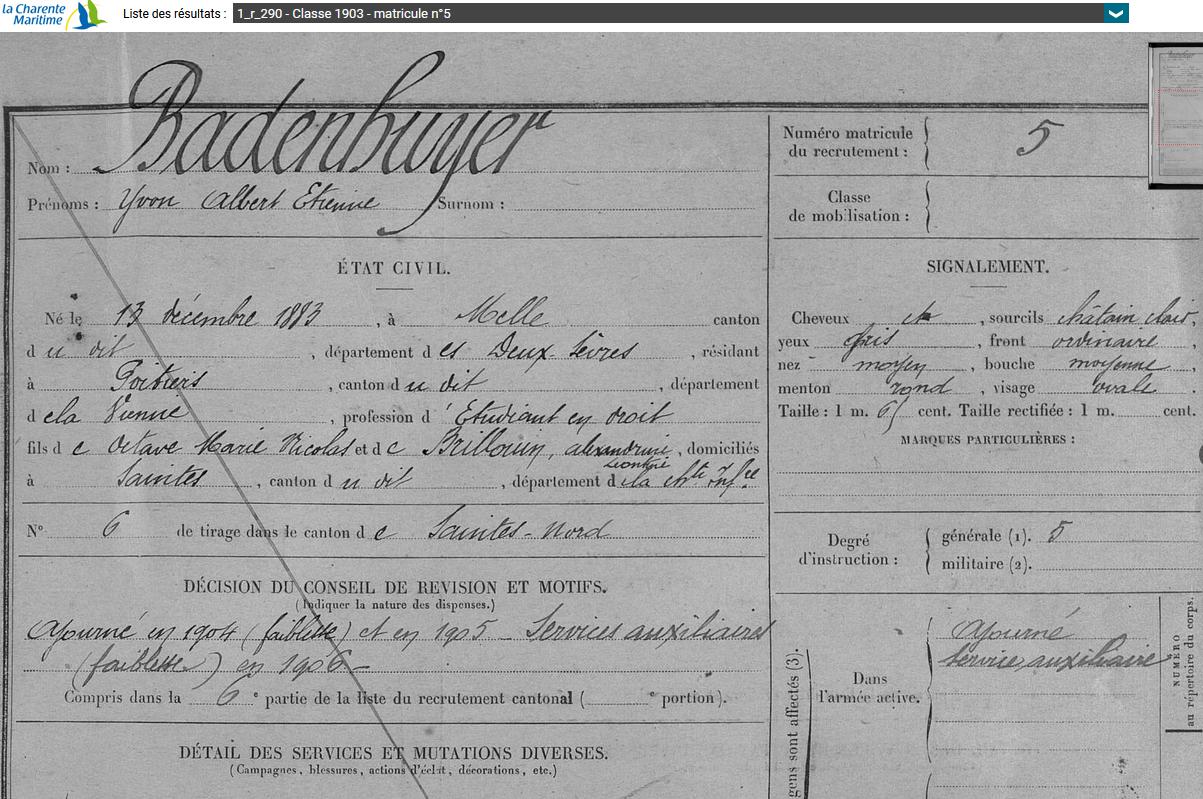 la Charente
Maritime
Liste des résultats : 1_r_290 - Classe 1903 - matricule n°5
Nom : Badenhuyer
Prénoms : Yvon Albert Etienne Surnom :
Numéro matricule
du recrutement : 5
Classe
de mobilisation :
ÉTAT CIVIL.
Né le 13 décembre 1883, à Melle canton
du dit, département des Deux-Sèvres, résidant
à Poitiers, canton du dit, département
de la Vienne, profession d'Etudiant en droit
fils de Octave Marie Nicolas et de Brillouin, alexandrine, domiciliés
Leontine
à Saintes, canton du dit, département de la Chte Infre
N° 6 de tirage dans le canton de Saintes-Nord
SIGNALEMENT.
Cheveux et, sourcils châtain clair,
yeux gris, front ordinaire,
nez moyen, bouche moyenne,
menton rond, visage ovale
Taille : 1 m. 65 cent. Taille rectifiée : 1 m. cent.
MARQUES PARTICULIÈRES :
Degré
d'instruction :
générale (1). 5
militaire (2).
DÉCISION DU CONSEIL DE REVISION ET MOTIFS.
(Indiquer la nature des dispenses.)
Ajourné en 1904 (faiblesse) et en 1905 - Services auxiliaires
(faiblesse) en 1906 -
Compris dans la 6e partie de la liste du recrutement cantonal ( e portion).
DÉTAIL DES SERVICES ET MUTATIONS DIVERSES.
(Campagnes, blessures, actions d'éclat, décorations, etc.)
gens sont affectés (3).
Dans
l'armée active.
Ajourné
Service auxiliaire
NUMÉRO
au répertoire du corps.